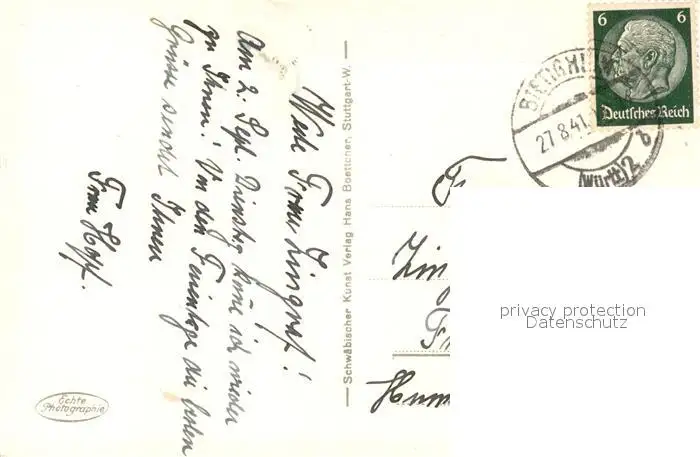 Werte Frau Zingraf!
Am 2. Sept. Dienstag käme ich wieder
zu Ihnen! Von den Feiertage die besten
Grüsse sendet Ihnen
Frau Hopf.
Echte
Photographie
Schwäbischer Kunst Verlag Hans Boettcher, Stuttgart-W.
6 6
Deutsches Reich
27.8.41
(Württ) 2
b
privacy protection
Datenschutz